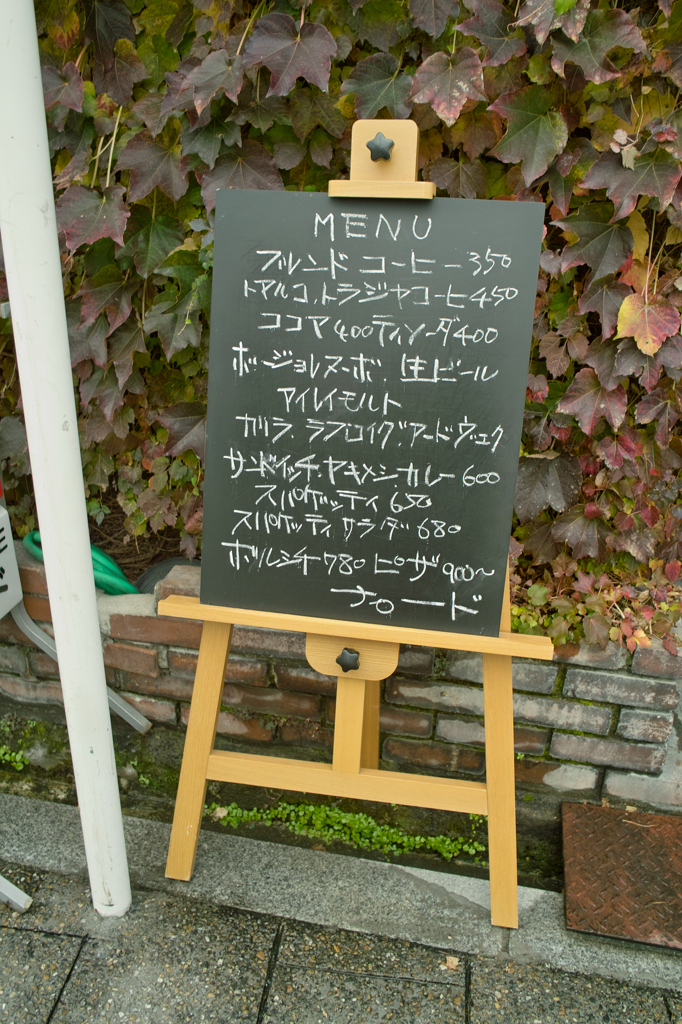 MENU
ブレンド コーヒー350
トアルコ.トラジャコーヒ450
ココア400ティソーダ400
ボージョレヌーボ. 生ビール
アイレイモルト
カリラ.ラフロイグ.アードヴェク
サンドイッチ.ヤキメシ.カレー600
スパゲッティ650
スパゲッティサラダ680
ボルシチ780ピザ900〜